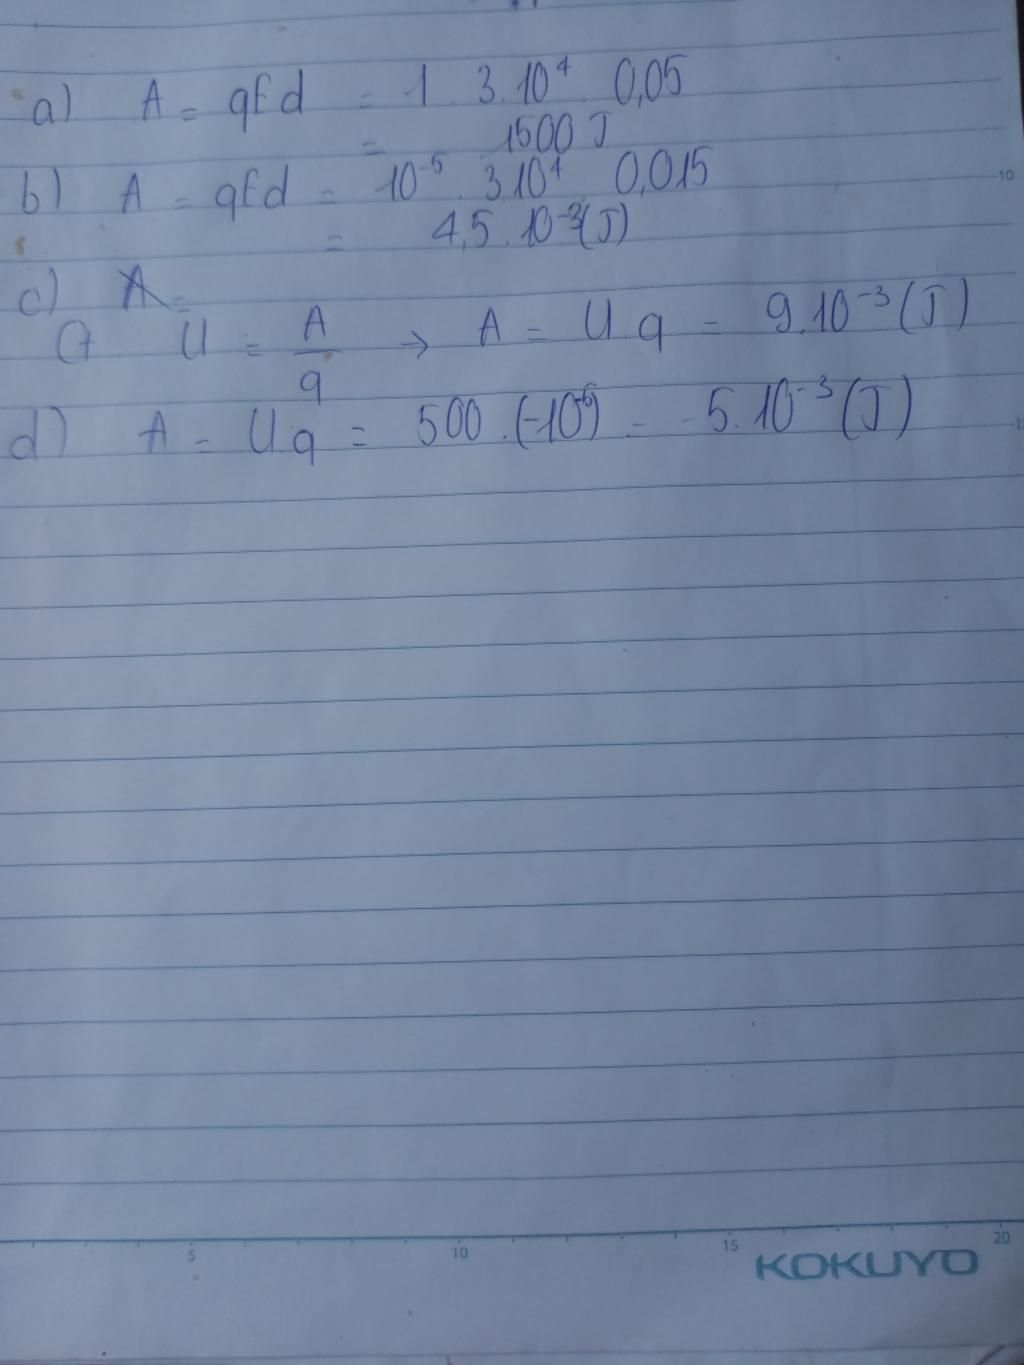 a) A = qEd = 1 . 3.10⁴ . 0,05
= 1500 J
b) A = qEd = 10⁻⁵ . 3.10⁴ . 0,015
= 4,5 . 10⁻³ (J)
c) A =
U = A/q → A = U.q = 9.10⁻³ (J)
d) A = U.q = 500 . (-10⁻⁶) = -5.10⁻³ (J)
10
5 10 15 20
KOKUYO